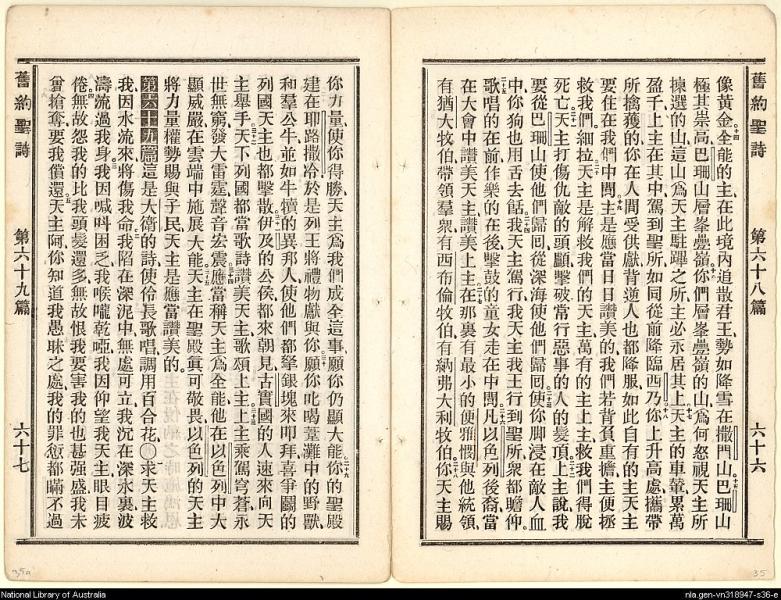 舊約聖詩 第六十八篇 六十六
像黃金全能的主在此境內追散君王勢如降雪在撒門山巴珊山
極其崇高巴珊山層峯疊嶺你們層峯疊嶺的山爲何怒視天主所
揀選的山這山爲天主駐蹕之所主必永居其上天主的車輦累萬
盈千上主在其中駕到聖所如同從前降臨西乃你上升高處攜帶
所擒獲的你在人間受供獻背逆人也都降服如此自有的主天主
要住在我們中間主是應當日日讚美的我們若背負重擔主便拯
救我們細拉天主是解救我們的天主萬有的主上主救我們得脫
死亡天主打傷仇敵的頭顱擊破常行惡事的人的髮頂上主說我
要從巴珊山使他們歸囘從深海使他們歸囘使你脚浸在敵人血
中你狗也用舌去餂我天主駕行我天主我王行到聖所衆都瞻仰
歌唱的在前作樂的在後擊鼓的童女走在中間凡以色列後裔當
在大會中讚美天主讚美上主在那裏有最小的便雅憫與他統領
有猶大牧伯帶領羣衆有西布倫牧伯有納弗大利牧伯你天主賜
你力量使你得勝天主爲我們成全這事願你仍顯大能你的聖殿
建在耶路撒冷於是列王將禮物獻與你願你叱喝葦灘中的野獸
和羣公牛並如牛犢的異邦人使他們都拏銀塊來叩拜喜爭鬭的
列國天主也都擊散伊及的公侯都來朝見古實國的人速來向天
主舉手天下列國都當歌詩讚美天主歌頌上主上主乘駕穹蒼永
世無窮發大雷霆聲音宏震應當稱天主爲全能他在以色列中大
顯威嚴在雲端中施展大能天主在聖殿眞可敬畏以色列的天主
將力量權勢賜與子民天主是應當讚美的
第六十九篇這是大衞的詩使伶長歌唱調用百合花求天主救
我因水流來將傷我命我陷在深泥中無處可立我沉在深水裏波
濤流過我身我因喊呌困乏我喉嚨乾啞我因仰望我天主眼目疲
倦無故怨我的比我頭髮還多無故恨我要害我的也甚强盛我未
曾搶奪要我償還天主阿你知道我愚昧之處我的罪愆都瞞不過
舊約聖詩 第六十九篇 六十七
35a
35
National Library of Australia
nla.gen-vn318947-s36-e